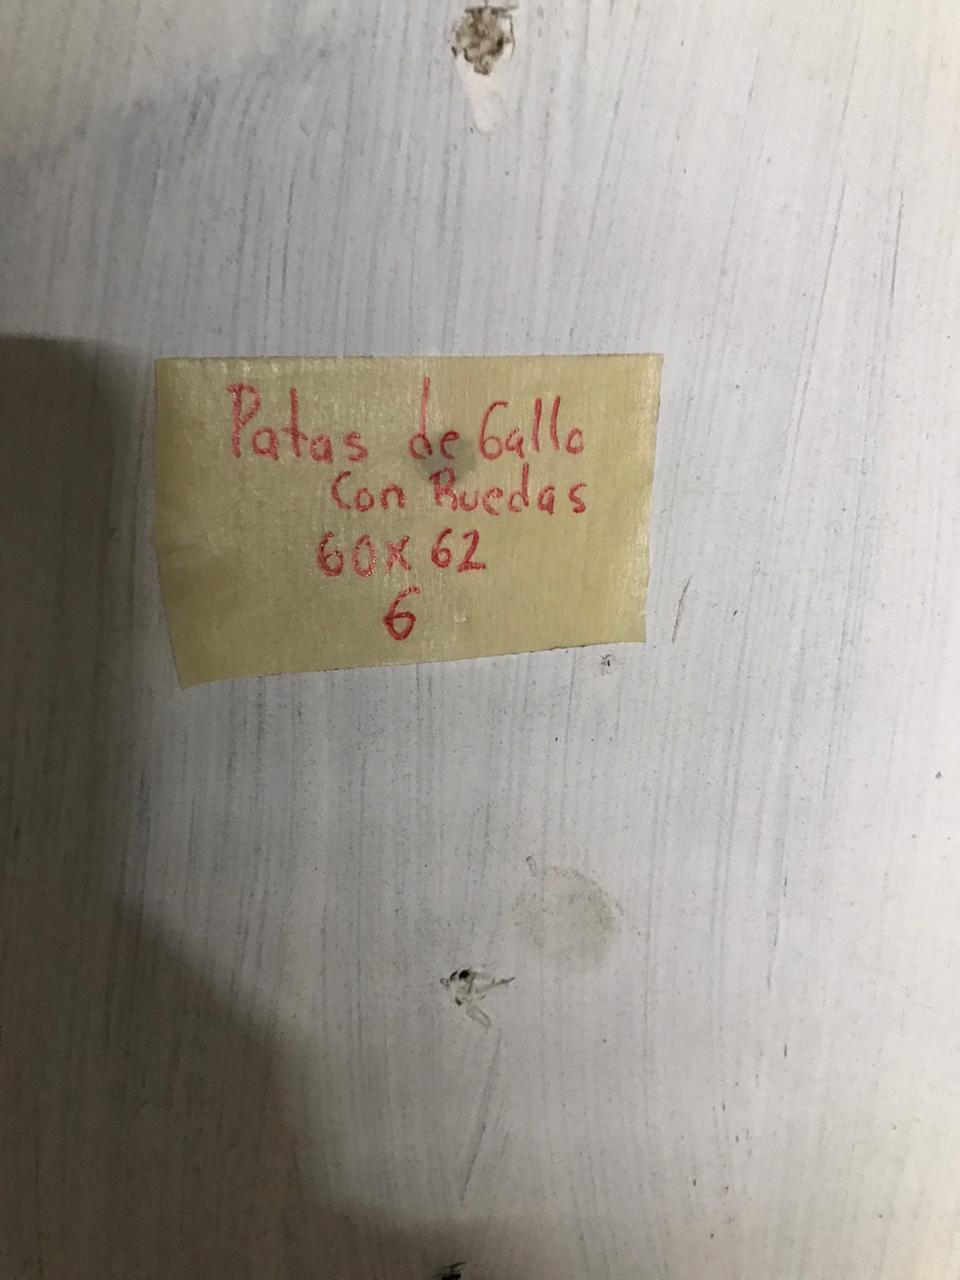 Patas de Gallo
Con Ruedas
60x62
6